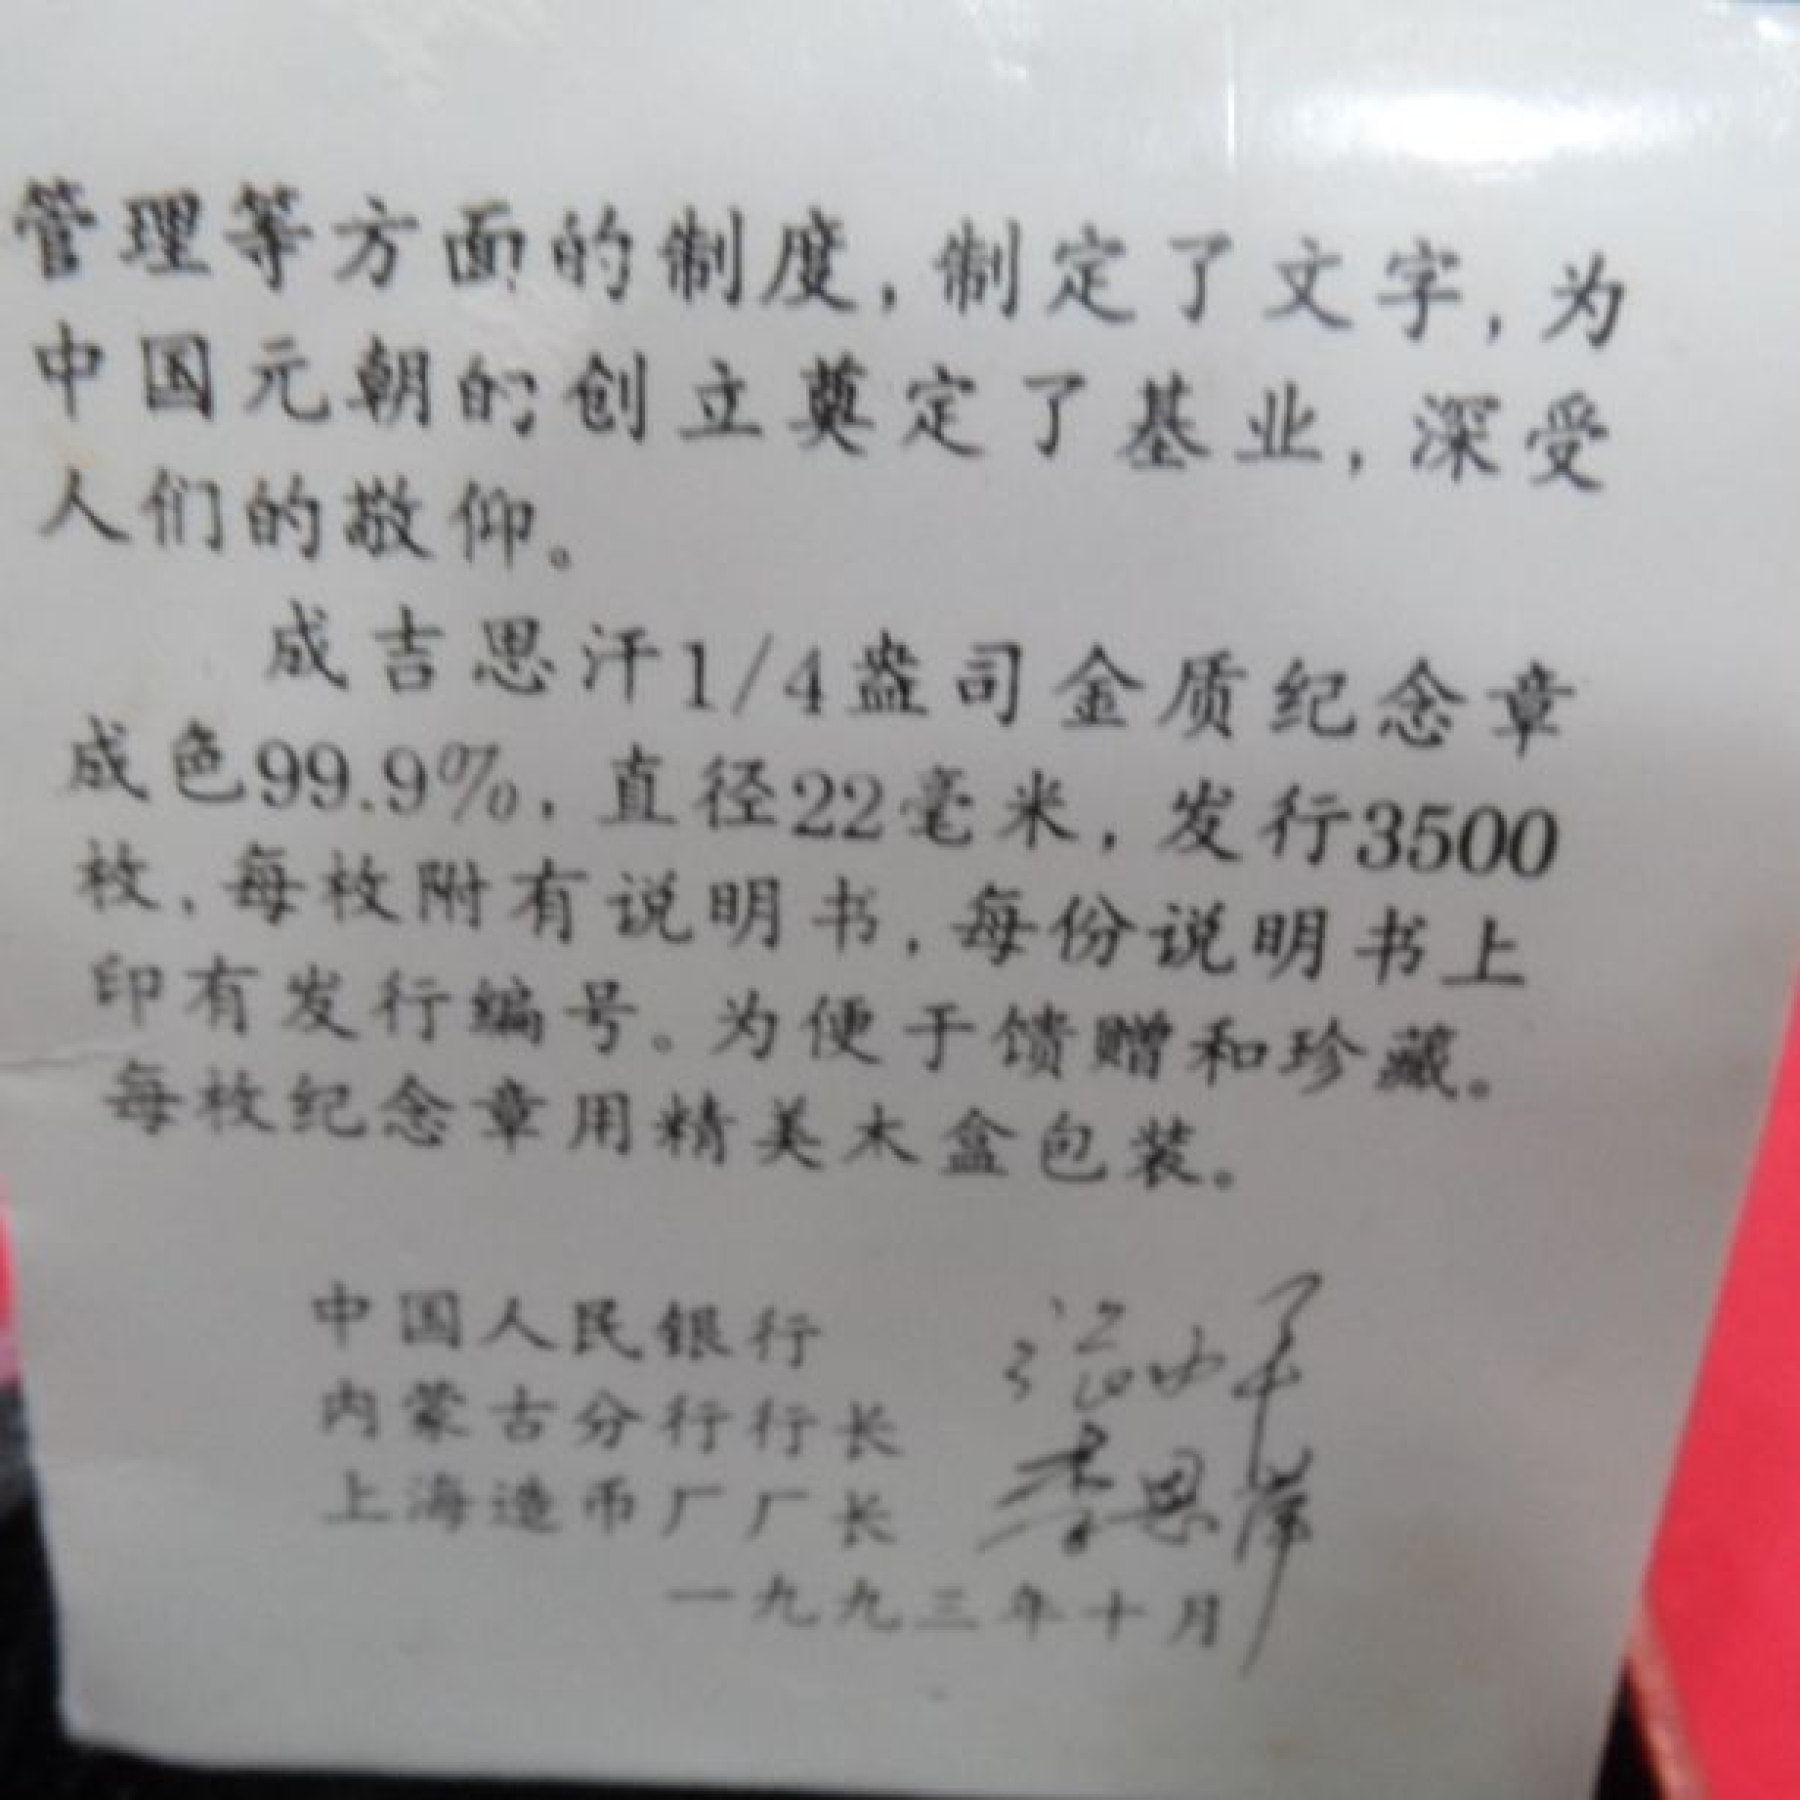 管理等方面的制度,制定了文字,为
中国元朝的创立奠定了基业,深受
人们的敬仰。
成吉思汗1/4盎司金质纪念章
成色99.9%,直径22毫米,发行3500
枚,每枚附有说明书,每份说明书上
印有发行编号。为便于馈赠和珍藏。
每枚纪念章用精美木盒包装。
中国人民银行
内蒙古分行行长
上海造币厂厂长
一九九三年十月